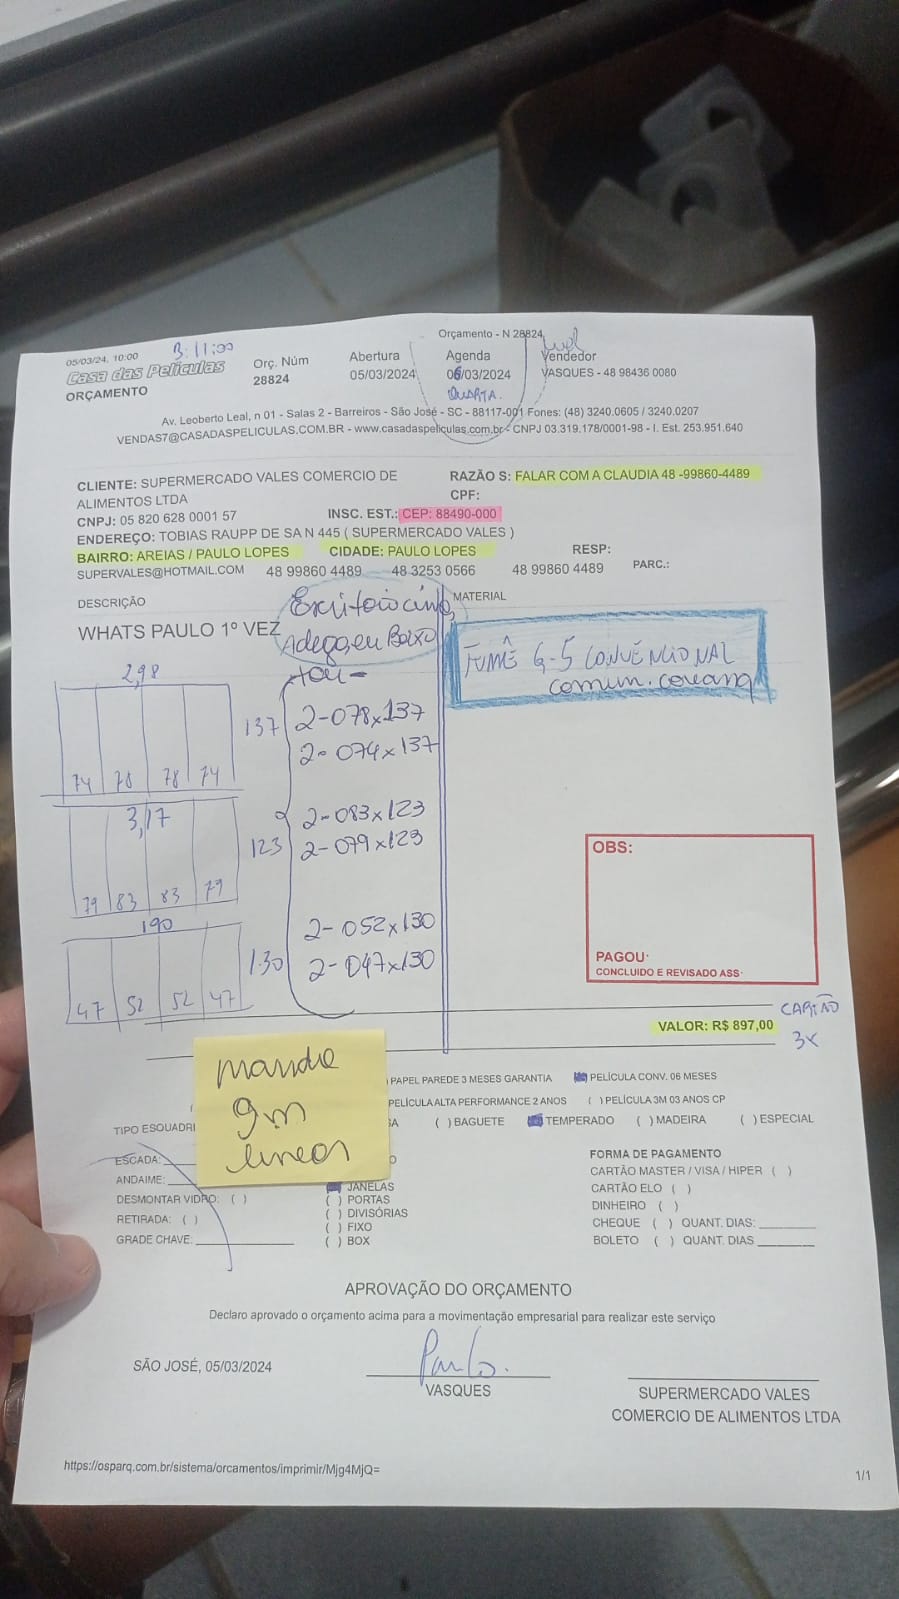 Orçamento - N 28824
05/03/24, 10:00
Casa das Películas
ORÇAMENTO
Orç. Núm
28824
Abertura
05/03/2024
Agenda
06/03/2024
QUARTA.
Vendedor
VASQUES - 48 98436 0080
Av. Leoberto Leal, n 01 - Salas 2 - Barreiros - São José - SC - 88117-001 Fones: (48) 3240.0605 / 3240.0207
VENDAS7@CASADASPELICULAS.COM.BR - www.casadaspeliculas.com.br - CNPJ 03.319.178/0001-98 - I. Est. 253.951.640
CLIENTE: SUPERMERCADO VALES COMERCIO DE
ALIMENTOS LTDA
RAZÃO S: FALAR COM A CLAUDIA 48 -99860-4489
CPF:
CNPJ: 05 820 628 0001 57
INSC. EST.: CEP: 88490-000
ENDEREÇO: TOBIAS RAUPP DE SA N 445 ( SUPERMERCADO VALES )
BAIRRO: AREIAS / PAULO LOPES
CIDADE: PAULO LOPES
RESP:
SUPERVALES@HOTMAIL.COM
48 99860 4489
48 3253 0566
48 99860 4489
PARC.:
DESCRIÇÃO
MATERIAL
WHATS PAULO 1º VEZ
Adega em Baixo
FUMÊ G-5 CONVENCIONAL
2,98
137
2-078x137
2-074x137
74 78 78 74
3,17
123
2-083x123
2-079x123
79 83 83 79
190
1.30
2-052x130
2-047x130
47 52 52 47
OBS:
PAGOU:
CONCLUIDO E REVISADO ASS:
VALOR: R$ 897,00
CARTÃO
3x
mandre
9m
lineos
) PAPEL PAREDE 3 MESES GARANTIA
PELÍCULA CONV. 06 MESES
PELÍCULA ALTA PERFORMANCE 2 ANOS
( ) PELÍCULA 3M 03 ANOS CP
TIPO ESQUADRI
( ) BAGUETE
TEMPERADO
( ) MADEIRA
( ) ESPECIAL
ESCADA:
ANDAIME:
DESMONTAR VIDRO: ( )
RETIRADA: ( )
GRADE CHAVE:
JANELAS
( ) PORTAS
( ) DIVISÓRIAS
( ) FIXO
( ) BOX
FORMA DE PAGAMENTO
CARTÃO MASTER / VISA / HIPER ( )
CARTÃO ELO ( )
DINHEIRO ( )
CHEQUE ( ) QUANT. DIAS:
BOLETO ( ) QUANT. DIAS
APROVAÇÃO DO ORÇAMENTO
Declaro aprovado o orçamento acima para a movimentação empresarial para realizar este serviço
SÃO JOSÉ, 05/03/2024
Paulo.
VASQUES
SUPERMERCADO VALES
COMERCIO DE ALIMENTOS LTDA
https://osparq.com.br/sistema/orcamentos/imprimir/Mjg4MjQ=
1/1